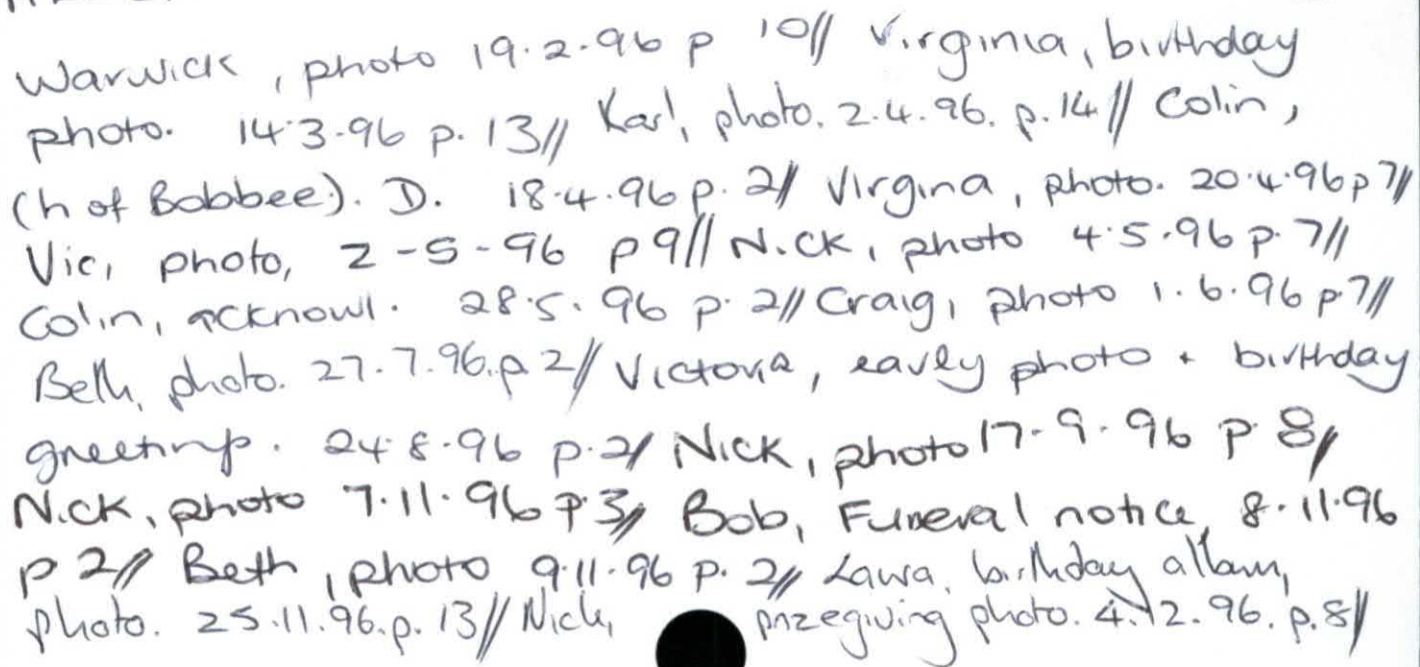 Warwick, photo 19.2.96 p 10// Virginia, birthday
photo. 14.3.96 p. 13// Karl, photo. 2.4.96. p.14// Colin,
(h of Bobbee). D. 18.4.96 p. 2// Virgina, photo. 20.4.96 p7//
Vic, photo, 2-5-96 p9// Nick, photo 4.5.96 p. 7//
Colin, acknowl. 28.5.96 p. 2// Craig, photo 1.6.96 p7//
Beth, photo. 27.7.96. p.2// Victoria, early photo + birthday
greetings. 24.8.96 p.2// Nick, photo 17.9.96 p 8//
Nick, photo 7.11.96 p3// Bob, Funeral notice, 8.11.96
p 2// Beth, photo 9.11.96 p. 2// Laura, birthday album,
photo. 25.11.96. p. 13// Nick, prizegiving photo. 4.12.96. p.8//